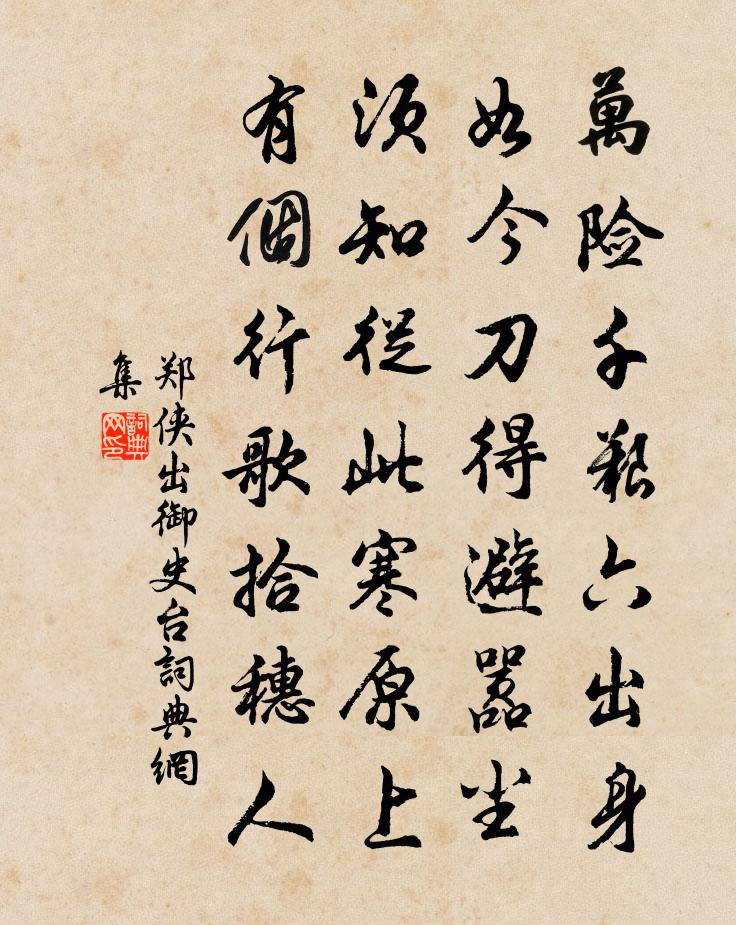 萬险千艱六出身
如今刀得避嚣尘
須知從此寒原上
有個行歌拾穗人
郑侠出御史台詞典網
集
詞典网印